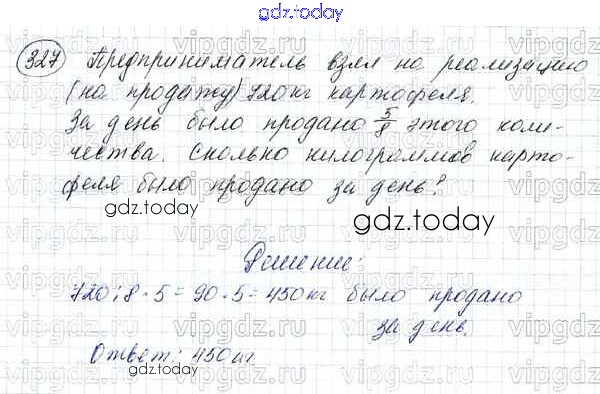 gdz.today
327 Предприниматель взял на реализацию
(на продажу) 720 кг картофеля.
За день было продано 5/8 этого коли-
чества. Сколько килограммов карто-
феля было продано за день?
gdz.today
gdz.today
Решение:
720 : 8 · 5 = 90 · 5 = 450 кг было продано
за день.
Ответ: 450 кг
gdz.today
gdz.today